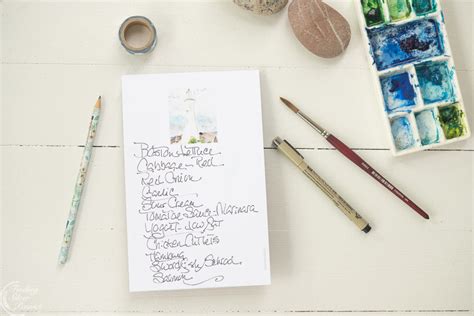 Boston Lettuce
Cabbage - Red
Red Onion
Garlic
Sour Cream
Tomatoe Sauce - Marinara
Yogurt - low fat
Chicken Cutlets
Swordfish, Schrod